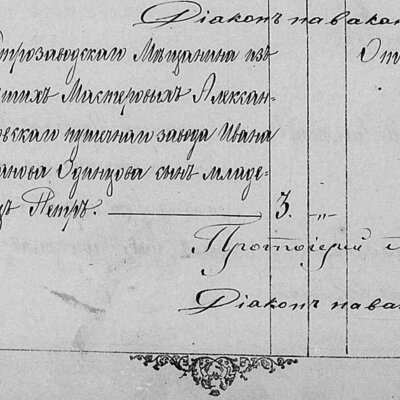 Діаконъ на вакан
трозаводскаго Мѣщанина изъ
шихъ Мастеровыхъ Алексан-
овскаго пушечнаго завода Ивана
анова Одинцова сынъ младе-
ъ Петръ. 3. -„-
Протоіерей
Діаконъ на вака